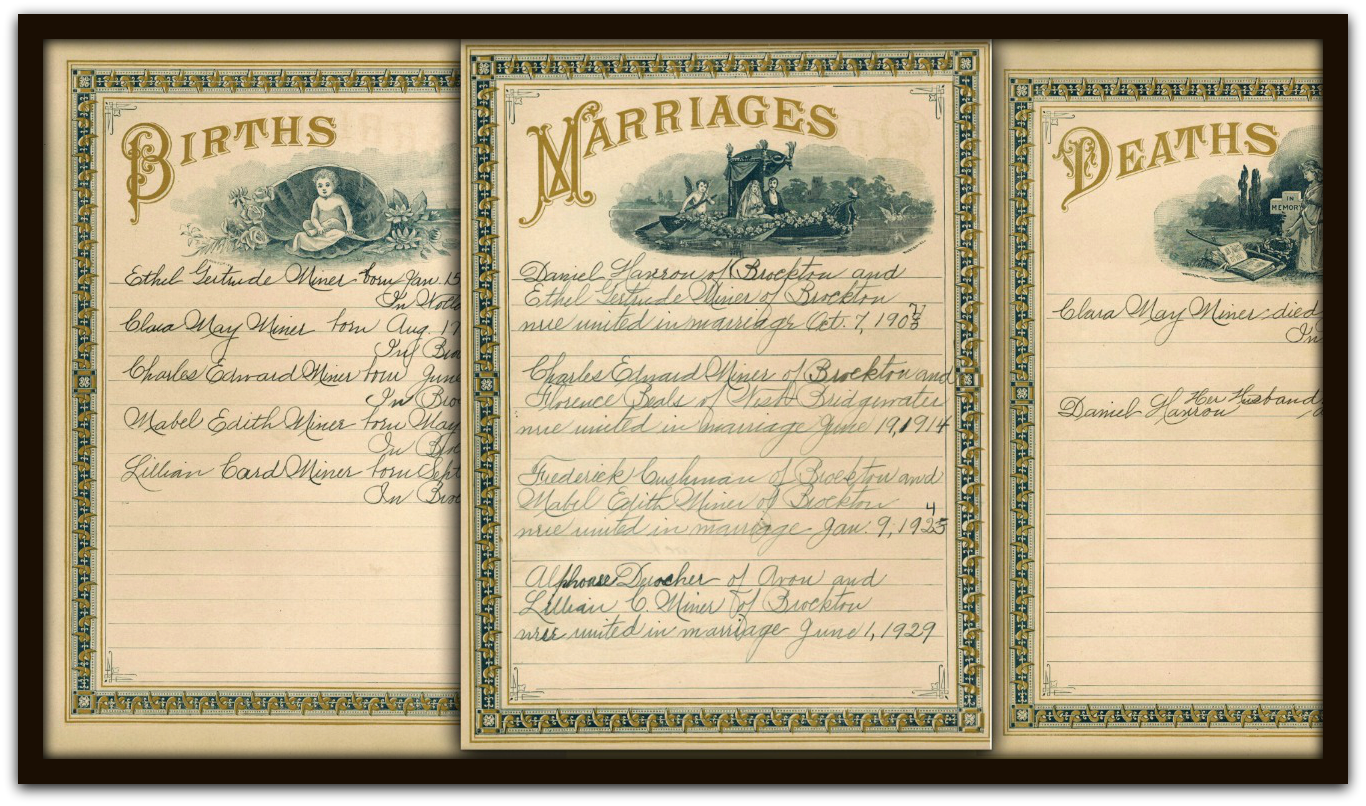 BIRTHS
Ethel Gertrude Miner born Jan. 15
In
Clara May Miner born Aug. 17
In Bro
Charles Edward Miner born June
In Bro
Mabel Edith Miner born May
In Bro
Lillian Card Miner born Sept
In Bro
MARRIAGES
Daniel Hanron of Brockton and
Ethel Gertrude Miner of Brockton
were united in marriage Oct. 7, 190
Charles Edward Miner of Brockton and
Florence Beals of West Bridgewater
were united in marriage June 19, 1914
Frederick Cushman of Brockton and
Mabel Edith Miner of Brockton
4
were united in marriage Jan. 9, 1925
Alphonse Durocher of Avon and
Lillian C. Miner of Brockton
were united in marriage June 1, 1929
DEATHS
IN
MEMORY
Clara May Miner died
In
Her Husband
Daniel Hanron